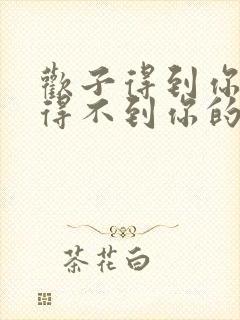 歡子得到你
得不到你的
茶花白